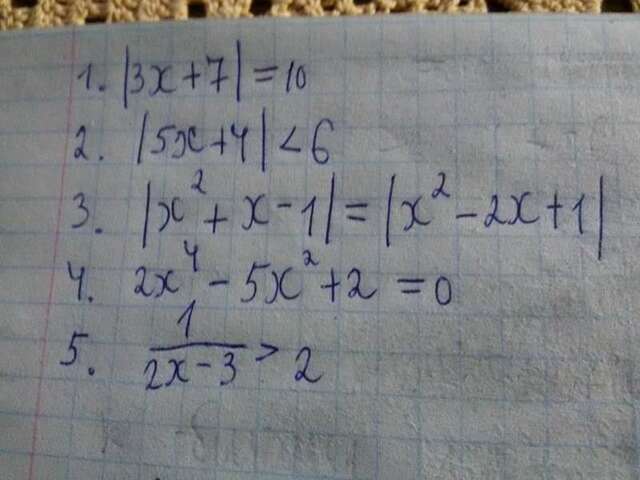 1. |3x+7|=10
2. |5x+4|<6
3. |x²+x-1|=|x²-2x+1|
4. 2x⁴-5x²+2=0
5. 1/(2x-3)>2